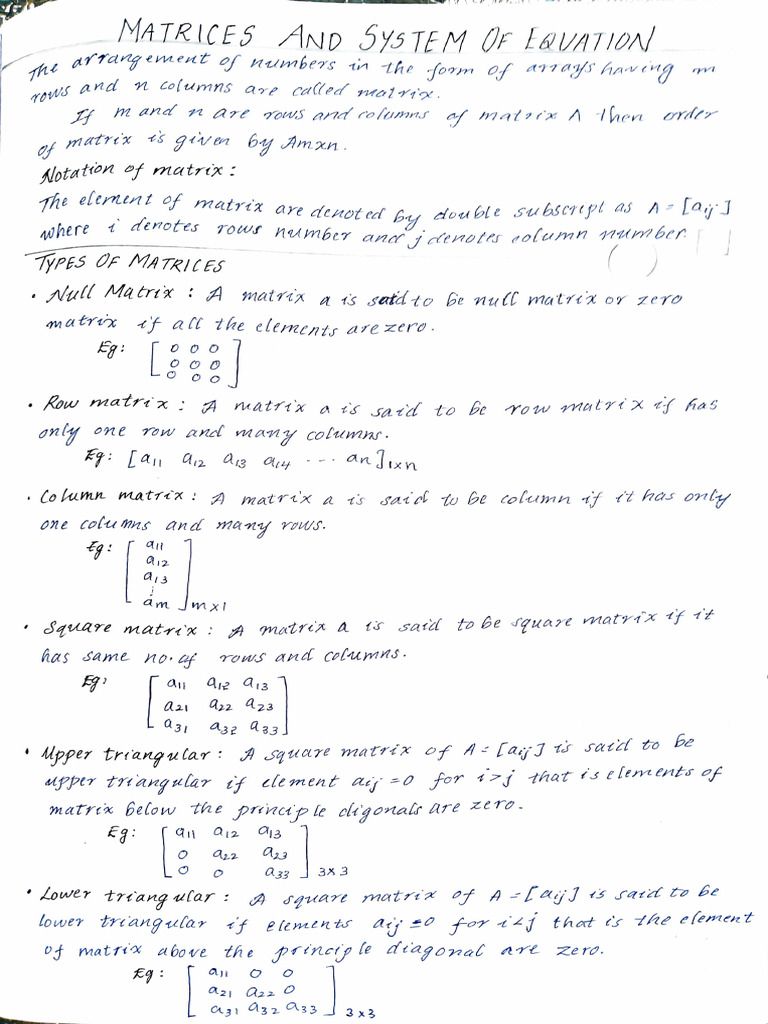 MATRICES AND SYSTEM OF EQUATION
The arrangement of numbers in the form of arrays having m
rows and n columns are called matrix.
If m and n are rows and columns of matrix A then order
of matrix is given by Amxn.
Notation of matrix :
The element of matrix are denoted by double subscript as A = [aij]
where i denotes rows number and j denotes column number.
( ) [ ]
TYPES OF MATRICES
• Null Matrix : A matrix a is said to be null matrix or zero
matrix if all the elements are zero.
Eg: [ 0 0 0
0 0 0
0 0 0 ]
• Row matrix : A matrix a is said to be row matrix if has
only one row and many columns.
Eg: [a11 a12 a13 a14 ... an]1xn
• Column matrix : A matrix a is said to be column if it has only
one columns and many rows.
Eg: [ a11
a12
a13
⋮
am ]mx1
• Square matrix : A matrix a is said to be square matrix if it
has same no. of rows and columns.
Eg: [ a11 a12 a13
a21 a22 a23
a31 a32 a33 ]
• Upper triangular : A square matrix of A = [aij] is said to be
upper triangular if element aij = 0 for i>j that is elements of
matrix below the principle digonals are zero.
Eg: [ a11 a12 a13
0 a22 a23
0 0 a33 ] 3x3
• Lower triangular : A square matrix of A = [aij] is said to be
lower triangular if elements aij = 0 for i<j that is the element
of matrix above the principle diagonal are zero.
Eg: [ a11 0 0
a21 a22 0
a31 a32 a33 ] 3x3